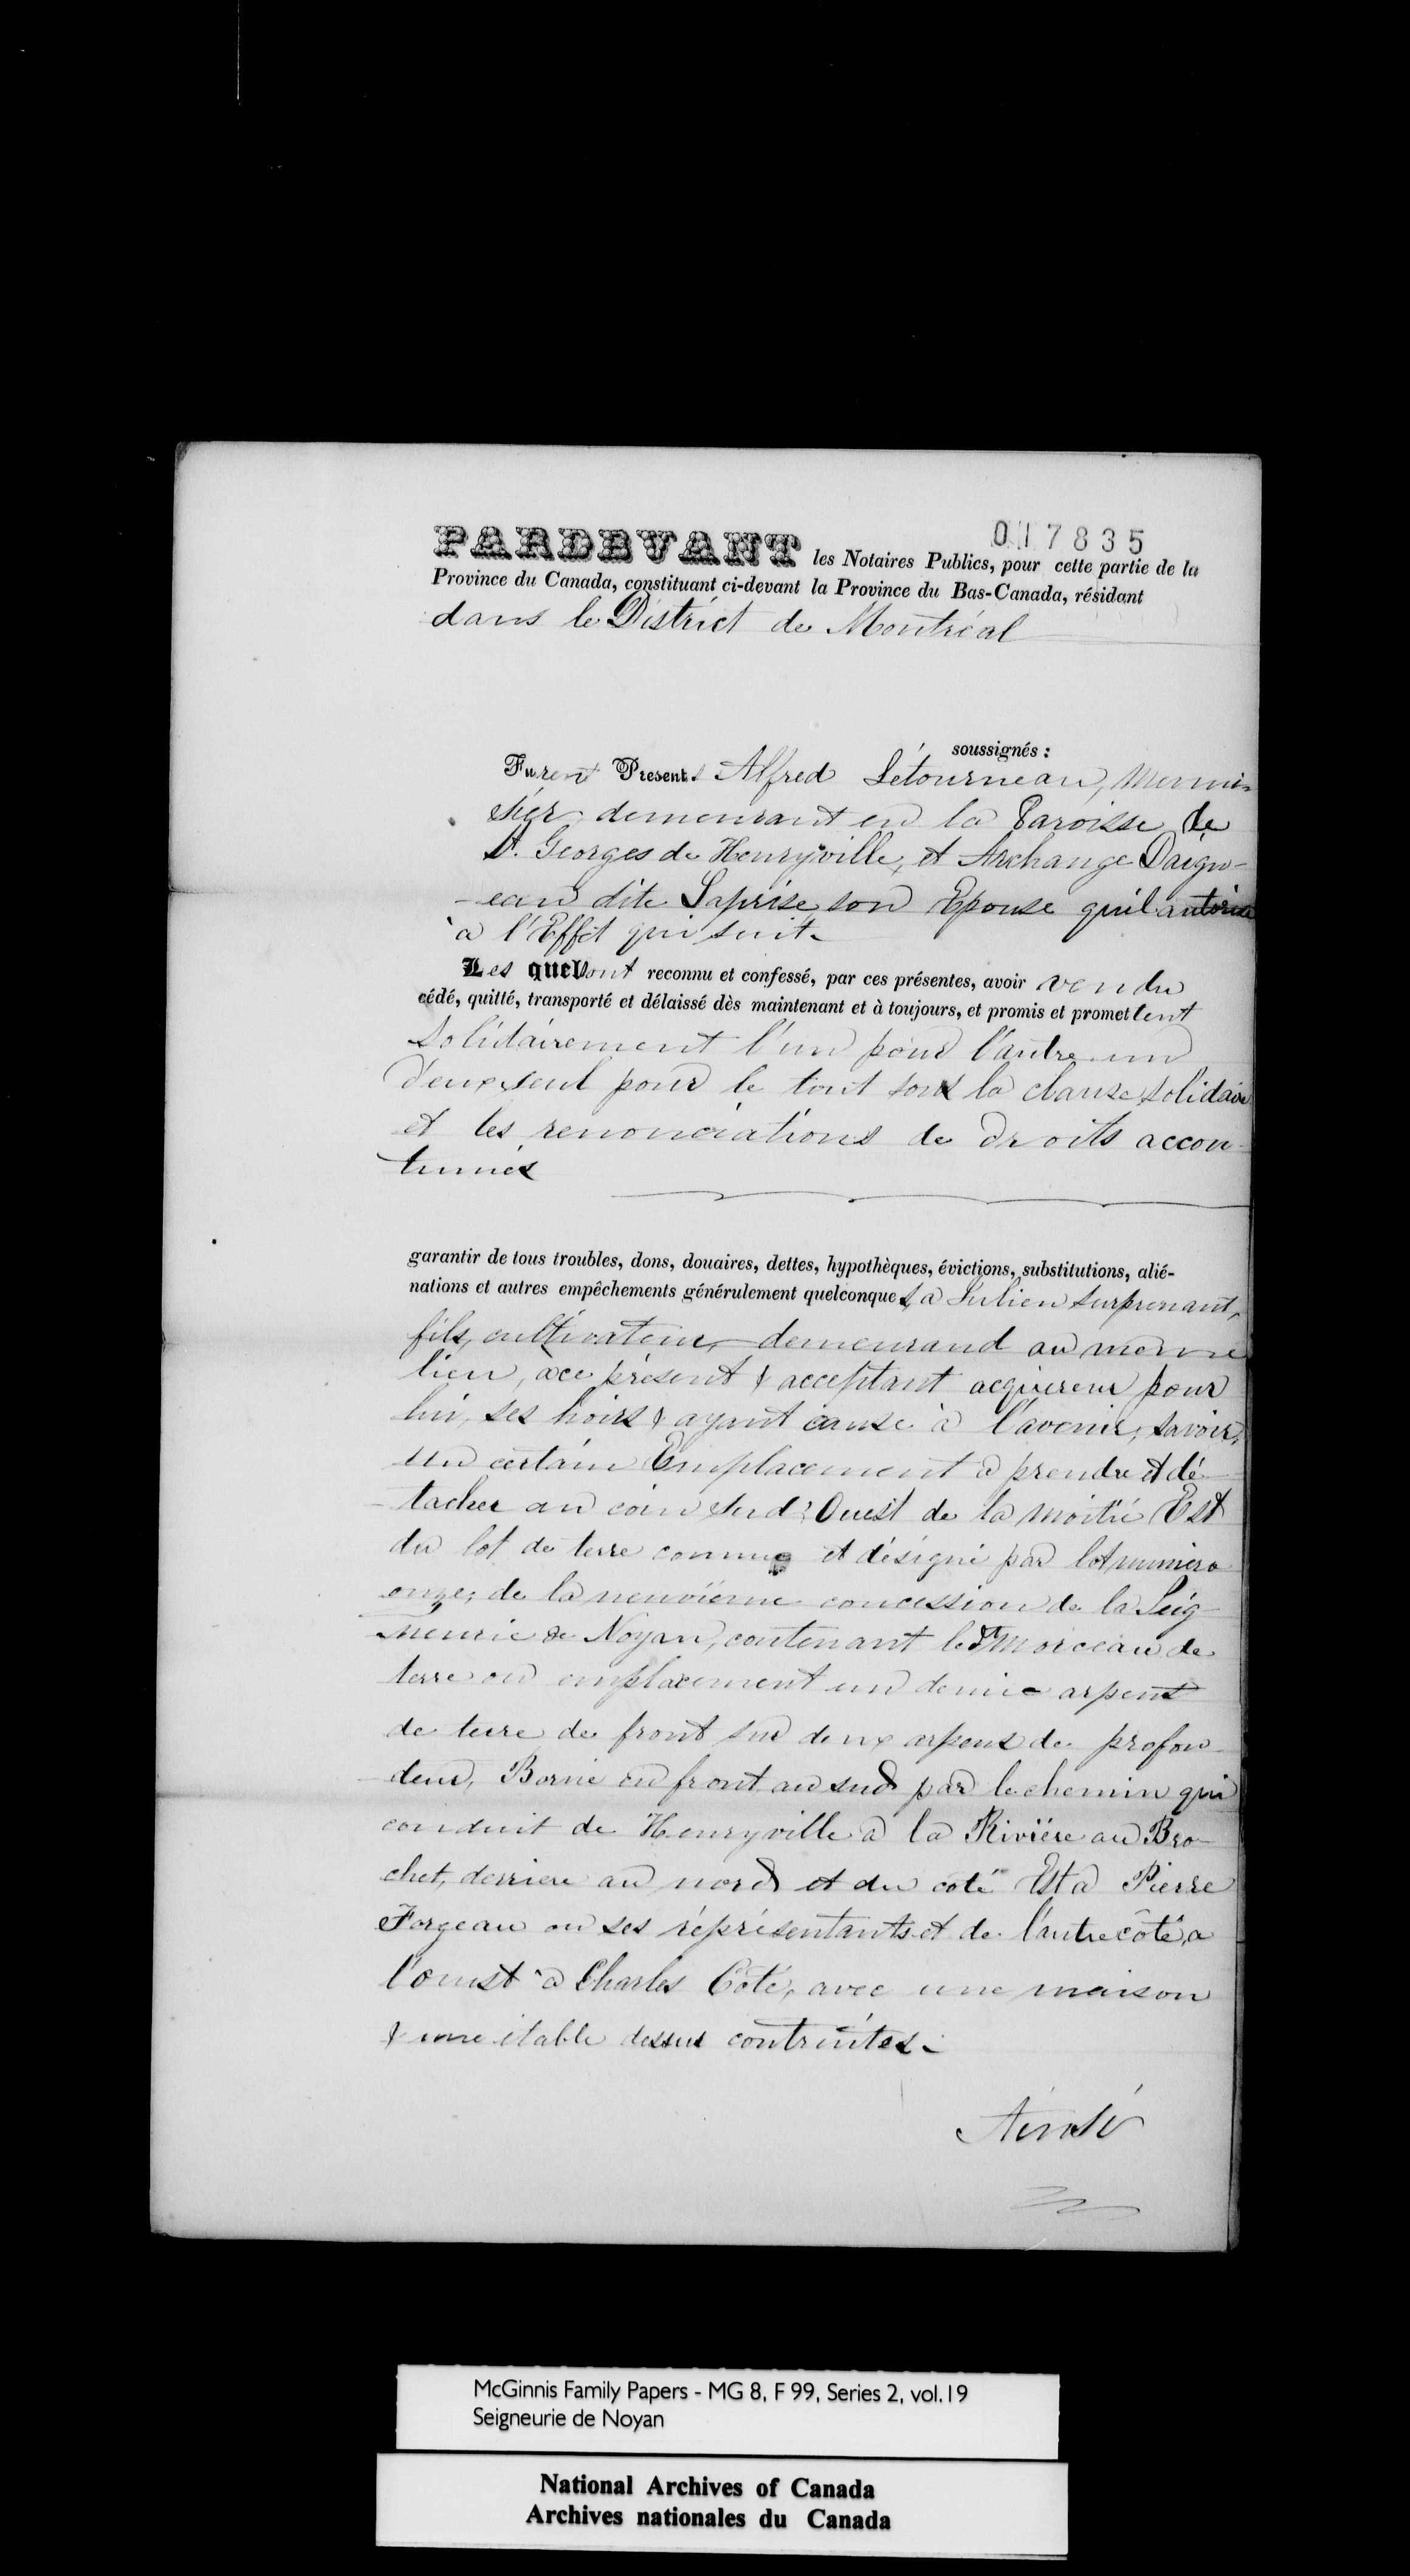 017835
PARDEVANT les Notaires Publics, pour cette partie de la
Province du Canada, constituant ci-devant la Province du Bas-Canada, résidant
dans le District de Montréal
soussignés :
Furent Presents Alfred Létourneau, Menui-
sier demeurant en la Paroisse de
St. Georges de Henryville, et Archange Daign-
-eau dite Laprise son Epouse qu'il autorise
à l'Effet qui suit.
Les quels ont reconnu et confessé, par ces présentes, avoir vendu
cédé, quitté, transporté et délaissé dès maintenant et à toujours, et promis et promettent
Solidairement l'un pour l'autre un
d'eux seul pour le tout sous la clause solidaire
et les renonciations de droits accou-
tumés
garantir de tous troubles, dons, douaires, dettes, hypothèques, évictions, substitutions, alié-
nations et autres empêchements générulement quelconques, a Julien Surprenant,
fils, cultivateur, demeurand au meme
lieu, a ce présent & acceptant acquereur pour
lui, ses hoirs & ayant cause à l'avenir, savoir,
un certain Emplacement à prendre et dé-
-tacher au coin Sud Ouest de la moitié Est
du lot de terre connu et désigné par lot numero
onze, de la neuvième concession de la Seig-
-neurie de Noyan, contenant le dt morceau de
terre ou emplacement un demie arpent
de terre de front sur deux arpens de profon-
-deur, Borné en front au sud par le chemin qui
conduit de Henryville à la Rivière au Bro-
chet, derriere au nord et du coté Est a Pierre
Forgeau ou ses réprésentants et de l'autre côté, a
l'ouest à Charles Coté, avec une maison
& une étable dessus contruites.
Ainsi
McGinnis Family Papers - MG 8, F 99, Series 2, vol.19
Seigneurie de Noyan
National Archives of Canada
Archives nationales du Canada